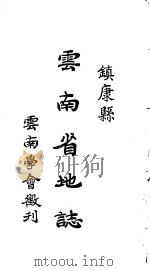 鎮康縣
雲南省地誌
雲南學會徵刊
http://www.mtoou.info